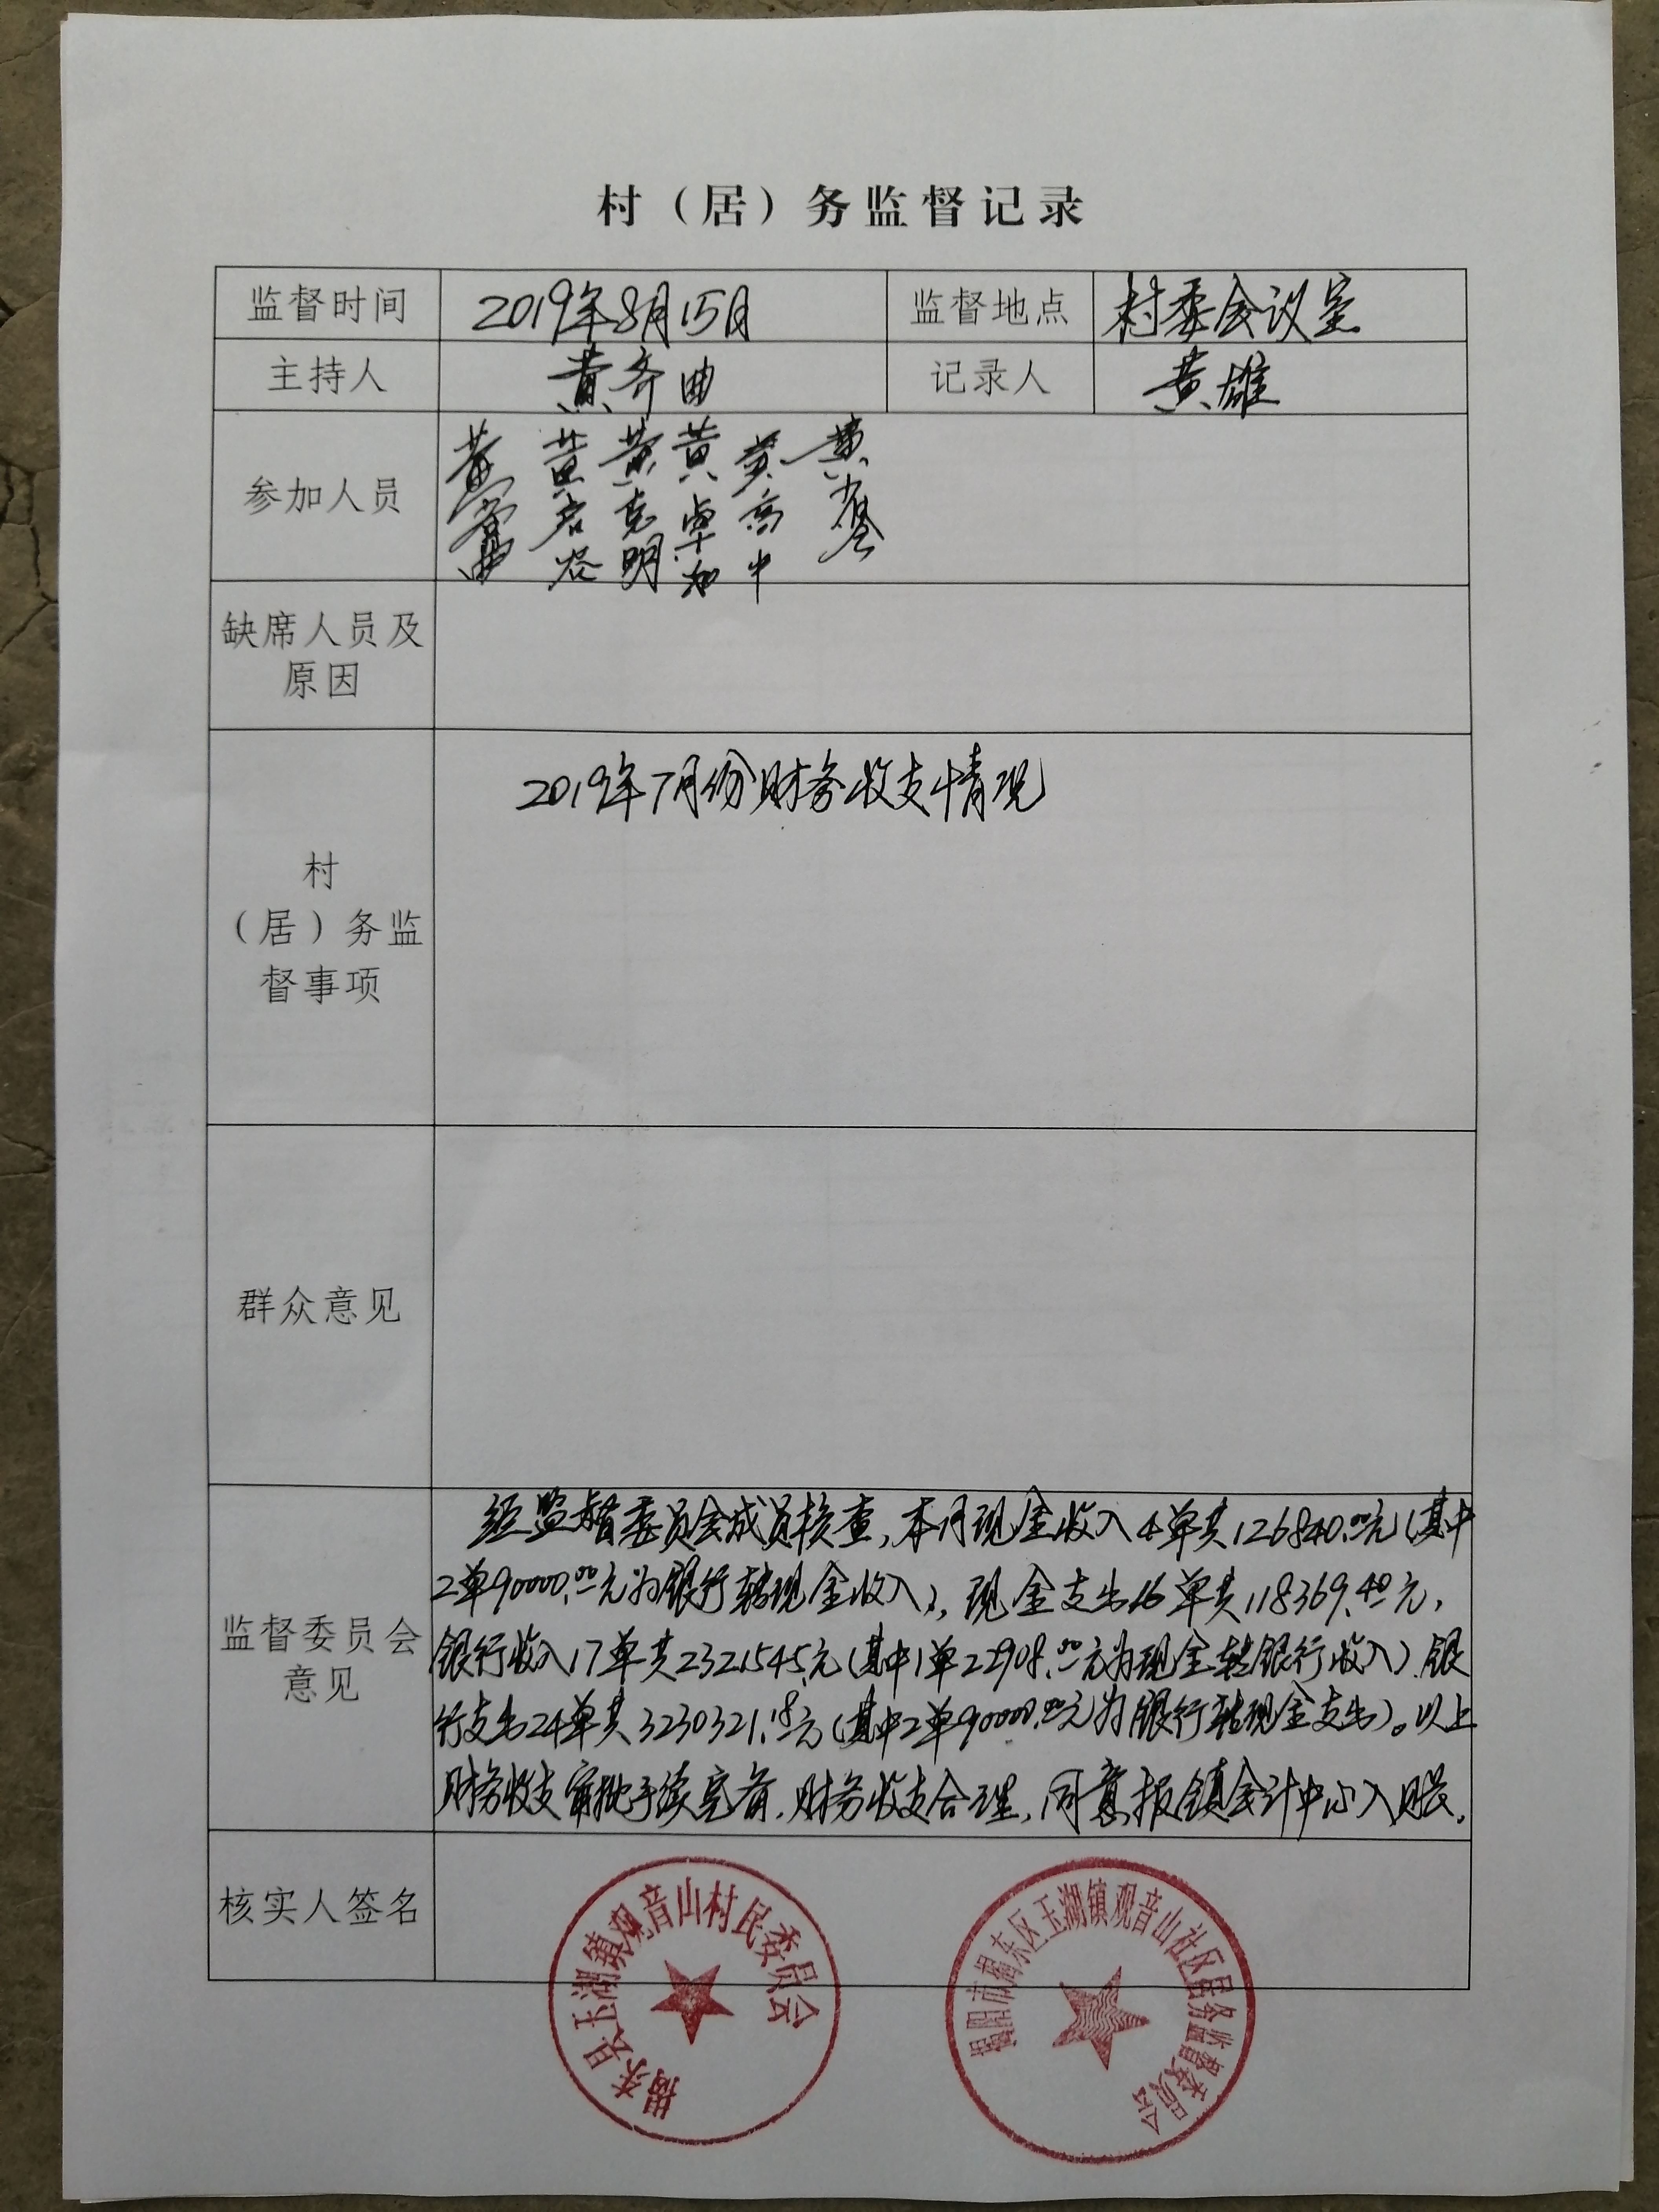 村（居）务监督记录
监督时间 2019年8月15日 监督地点 村委会议室
主持人 黄齐曲 记录人 黄雄
参加人员 黄 黄 黄克明 黄卓加 黄高中 黄
缺席人员及
原因
2019年7月份财务收支情况
村
（居）务监
督事项
群众意见
经监督委员会成员核查，本月现金收入4单共126840.00元（其中
2单90000.00元为银行转现金收入），现金支出16单共118369.40元，
银行收入17单共2321545元（其中1单22908.00元为现金转银行收入）.银
行支出24单共3230321.18元（其中2单90000.00元为银行转现金支出）。以上
财务收支审批手续完备.财务收支合理，同意报镇会计中心入账.
监督委员会
意见
核实人签名
揭东县玉湖镇观音山村民委员会
揭阳市揭东区玉湖镇观音山社区居务监督委员会